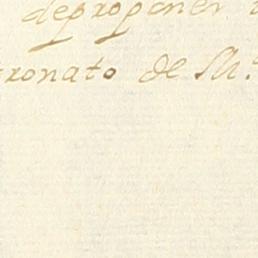 deproponer
ronato de M.